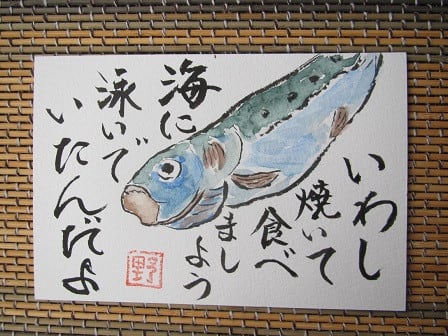 いわし
焼いて
食べ
ましよう
海に
泳いで
いたんだよ